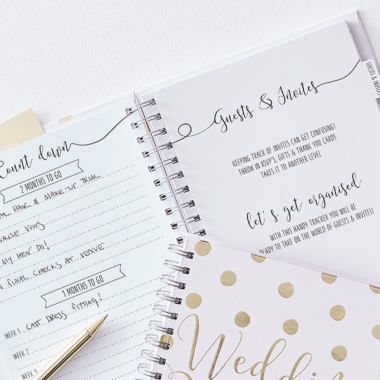 Count down
2 MONTHS TO GO
HAIR & MAKE-UP TRIAL
MY HEN DO!
FINAL CHECKS AT VENUE
1 MONTHS TO GO
WEEK 1 LAST DRESS FITTING!
WEEK 2
WEEK 3
Guests & Invites
KEEPING TRACK OF INVITES CAN GET CONFUSING!
THROW IN RSVP'S, GIFTS & THANK YOU CARDS
TAKES IT TO ANOTHER LEVEL
let's get organised
WITH THIS HANDY TRACKER YOU WILL BE
READY TO TAKE ON THE WORLD OF GUESTS & INVITES!
GUESTS & INVITES
Wedding